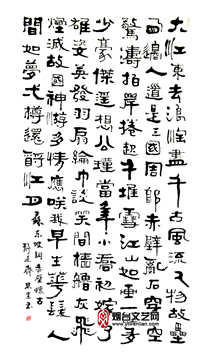 大江東去浪淘盡千古風流人物故壘
西邊人道是三國周郎赤壁亂石穿空
驚濤拍岸捲起千堆雪江山如畫一時多
少豪傑遙想公瑾當年小喬初嫁了
雄姿英發羽扇綸巾談笑間檣櫓灰飛
煙滅故國神遊多情應笑我早生華髮人
間如夢弌樽還酹江月
蘇東坡詞赤壁懷古
烟台文艺网